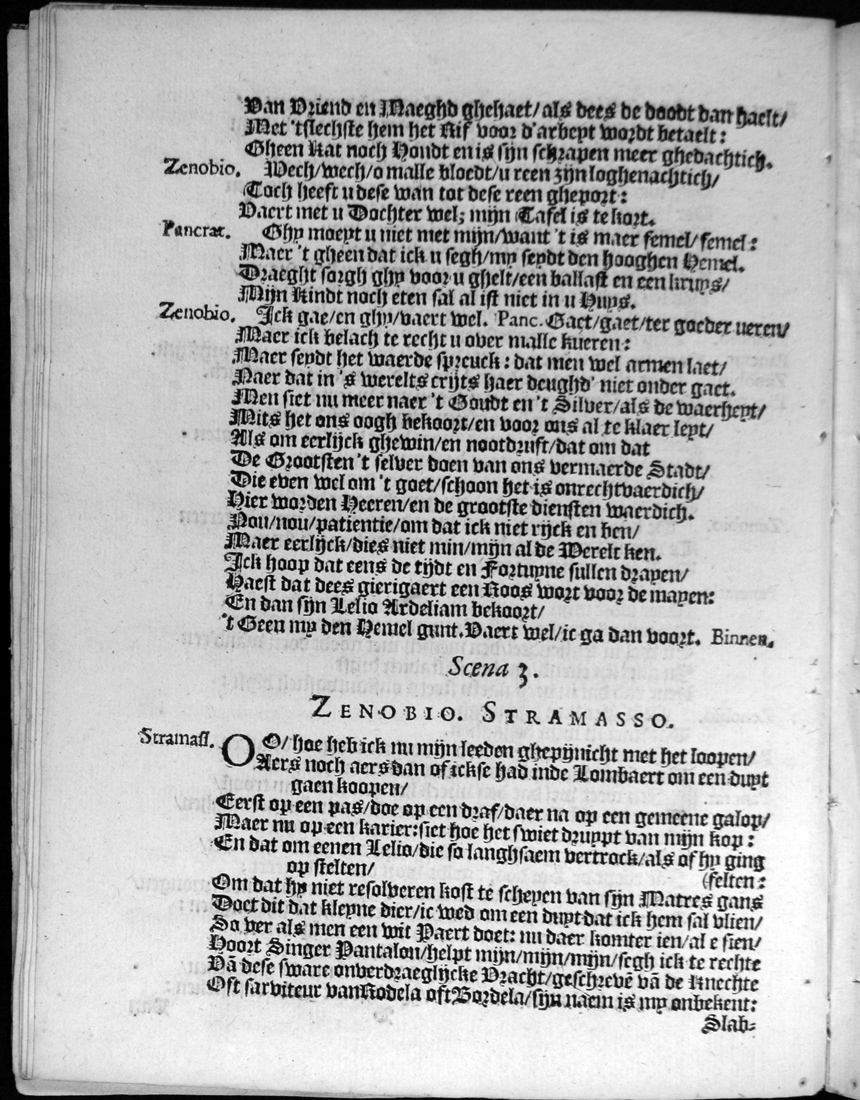 Van Vriend en Maeghd ghehaet/als dees de doodt dan haelt/
Met 'tslechste hem het Rif voor d'arbeyt wordt betaelt:
Gheen Kat noch Hondt en is sijn schrapen meer ghedachtich.
Zenobio. Wech/wech/o malle bloedt/u reen zijn loghenachtich/
Toch heeft u dese wan tot dese reen gheport:
Vaert met u Dochter wel; mijn Tafel is te kort.
Pancrat. Ghy moeyt u niet met mijn/want 't is maer femel/femel:
Maer 't gheen dat ick u segh/my seydt den hooghen Hemel.
Draeght sorgh ghy voor u ghelt/een ballast en een kruys/
Mijn Kindt noch eten sal al ist niet in u Huys.
Zenobio. Ick gae/en ghy/vaert wel. Panc. Gaet/gaet/ter goeder ueren/
Maer ick belach te recht u over malle kueren:
Maer seydt het waerde spreuck: dat men wel armen laet/
Naer dat in 's werelts crijts haer deughd' niet onder gaet.
Men siet nu meer naer 't Goudt en 't Silver/als de waerheyt/
Mits het ons oogh bekoort/en voor ons al te klaer leyt/
Als om eerlijck ghewin/en nootdruft/dat om dat
De Grootsten 't selver doen van ons vermaerde Stadt/
Die even wel om 't goet/schoon het is onrechtvaerdich/
Hier worden Heeren/en de grootste diensten waerdich.
Nou/nou/patientie/om dat ick niet rijck en ben/
Maer eerlijck/dies niet min/mijn al de Werelt ken.
Ick hoop dat eens de tijdt en Fortuyne sullen drayen/
Haest dat dees gierigaert een Roos wort voor de mayen:
En dan sijn Lelio Ardeliam bekoort/
't Geen my den Hemel gunt. Vaert wel/ic ga dan voort. Binnen.
Scena 3.
ZENOBIO. STRAMASSO.
Stramass. OO/hoe heb ick nu mijn leeden ghepijnicht met het loopen/
Aers noch aers dan of ickse had inde Lombaert om een duyt
gaen koopen/
Eerst op een pas/doe op een draf/daer na op een gemeene galop/
Maer nu op een karier: siet hoe het swiet druypt van mijn kop:
En dat om eenen Lelio/die so langhsaem vertrock/als of hy ging
op stelten/ (felten:
Om dat hy niet resolveren kost te scheyen van sijn Matres gans
Doet dit dat kleyne dier/ic wed om een duyt dat ick hem sal vlien/
So ver als men een wit Paert doet: nu daer komter ien/al e sien/
Hoort Singer Pantalon/helpt mijn/mijn/mijn/segh ick te rechte
Vā dese sware onverdraeglijcke Vracht/geschrevē vā de Knechte
Oft sarviteur van Rodela oft Bordela/sijn naem is my onbekent:
Slab-